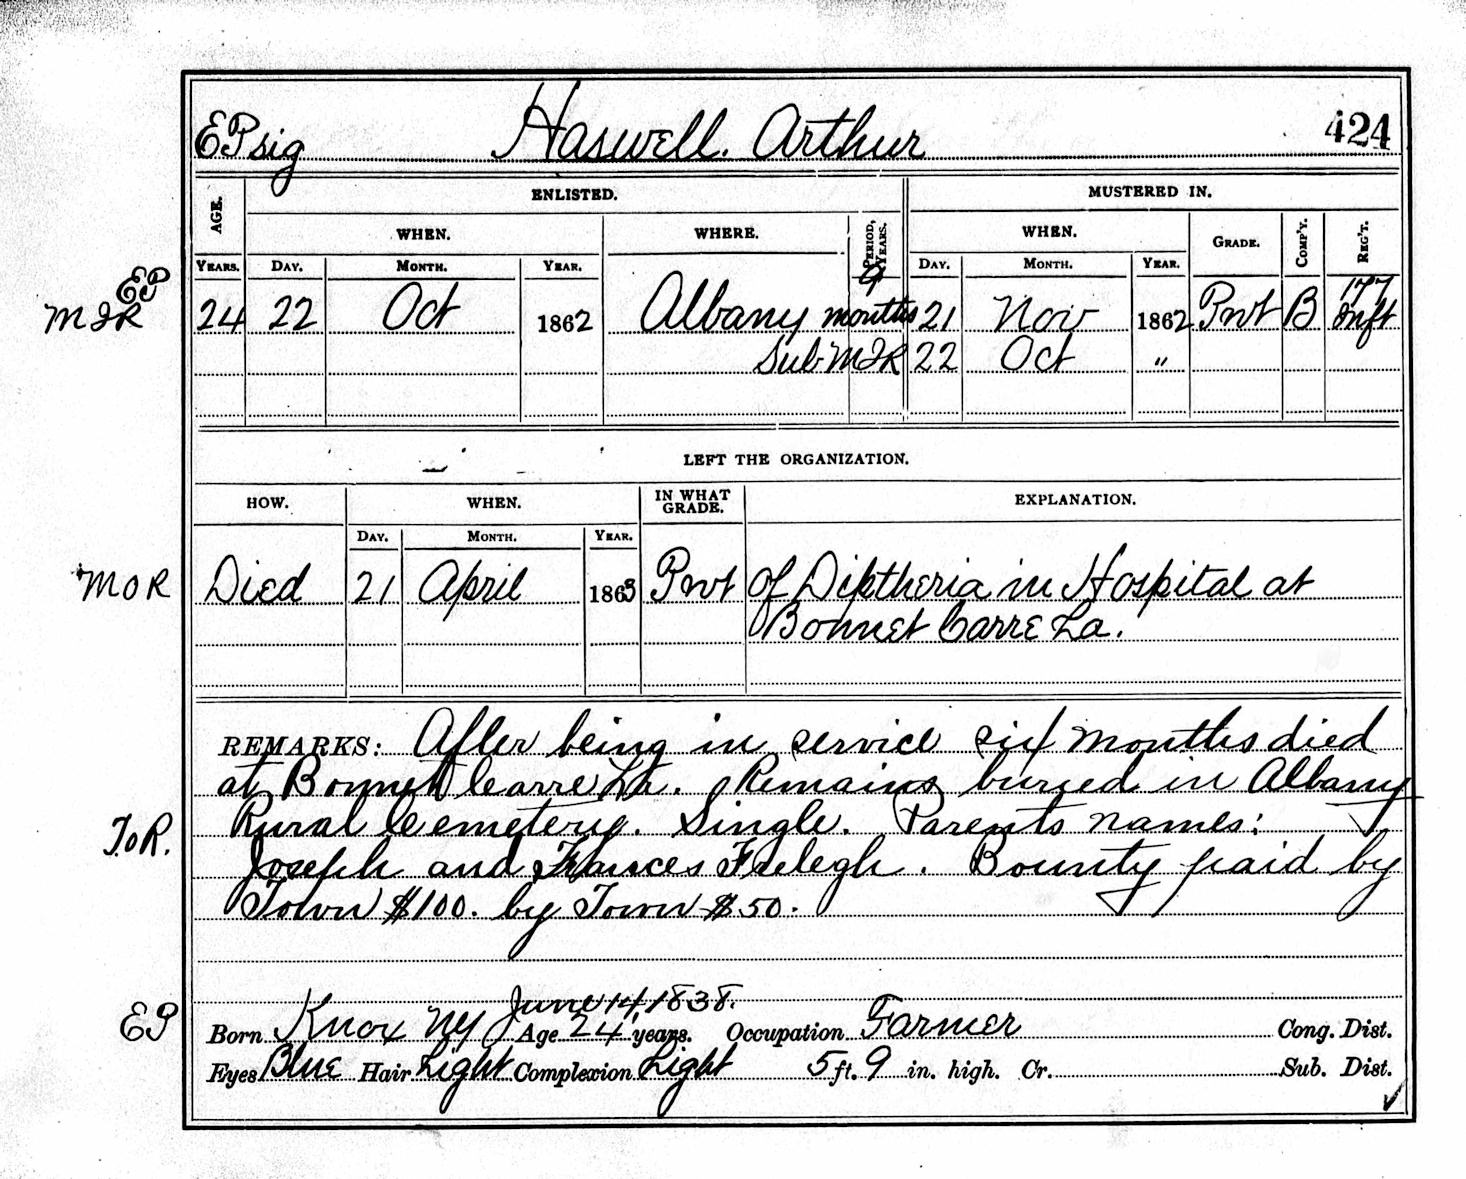 EP sig Haswell. Arthur 424
AGE. ENLISTED. MUSTERED IN.
WHEN. WHERE. PERIOD, YEARS. WHEN. GRADE. COMP'Y. REG'T.
YEARS. DAY. MONTH. YEAR. DAY. MONTH. YEAR.
EP 9 177
M I R 24 22 Oct 1862 Albany months 21 Nov 1862 Pvt B Inft
Sub M I R 22 Oct "
LEFT THE ORGANIZATION.
HOW. WHEN. IN WHAT GRADE. EXPLANATION.
DAY. MONTH. YEAR.
M O R Died 21 April 1863 Pvt of Diptheria in Hospital at
Bonnet Carre La.
REMARKS: After being in service six months died
at Bonnet Carre La. Remains buried in Albany
Rural Cemetery. Single. Parents names:
T.o.R.
Joseph and Frances Frelegh. Bounty paid by
Town $100. by Town $50.
June 14, 1838.
EP Born Knox NY Age 24 years. Occupation Farmer Cong. Dist.
Eyes Blue Hair Light Complexion Light 5 ft. 9 in. high. Cr. Sub. Dist.